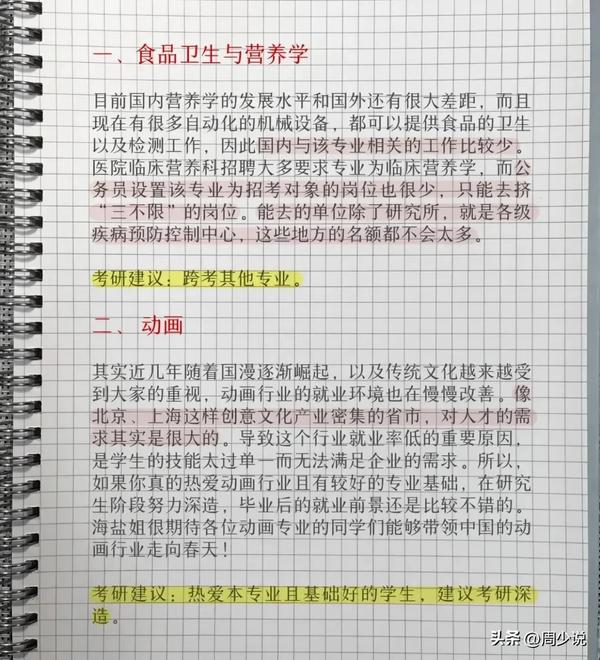 一、食品卫生与营养学
目前国内营养学的发展水平和国外还有很大差距，而且
现在有很多自动化的机械设备，都可以提供食品的卫生
以及检测工作，因此国内与该专业相关的工作比较少。
医院临床营养科招聘大多要求专业为临床营养学，而公
务员设置该专业为招考对象的岗位也很少，只能去挤
“三不限”的岗位。能去的单位除了研究所，就是各级
疾病预防控制中心，这些地方的名额都不会太多。
考研建议：跨考其他专业。
二、动画
其实近几年随着国漫逐渐崛起，以及传统文化越来越受
到大家的重视，动画行业的就业环境也在慢慢改善。像
北京、上海这样创意文化产业密集的省市，对人才的需
求其实是很大的。导致这个行业就业率低的重要原因，
是学生的技能太过单一而无法满足企业的需求。所以，
如果你真的热爱动画行业且有较好的专业基础，在研究
生阶段努力深造，毕业后的就业前景还是比较不错的。
海盐姐很期待各位动画专业的同学们能够带领中国的动
画行业走向春天！
考研建议：热爱本专业且基础好的学生，建议考研深
造。
头条 @周少说